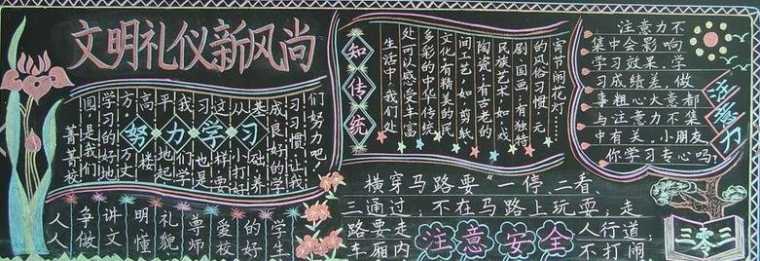 文明礼仪新风尚
菁菁校
园,是我们
学习的好地
方,万丈
高楼
平地起
我们学
习也是
这样要
从打好
基础养
成良好的学
习习惯,让我
们努力吧!
努力学习
人人
争做
讲文
明懂
礼貌
尊师
爱校
的好
学生
知传统
生活中,我们处
处可以感受丰富
多彩的中华传统
文化:有精美的民
间工艺,如:剪纸
陶瓷;有古老的
民族艺术,如:戏
剧、国画;有独特
的风俗习惯:元
宵节闹花灯……
注意力不
集中会影响
学习效果、学
习成绩差,做
事粗心大意都
与注意力不集
中有关,小朋友
你学习专心吗?
注意力
横穿马路要“一停、二看、
三通过,不在马路上玩耍,走
路要走 人行道,
车厢内 不打闹
注意安全
三零三